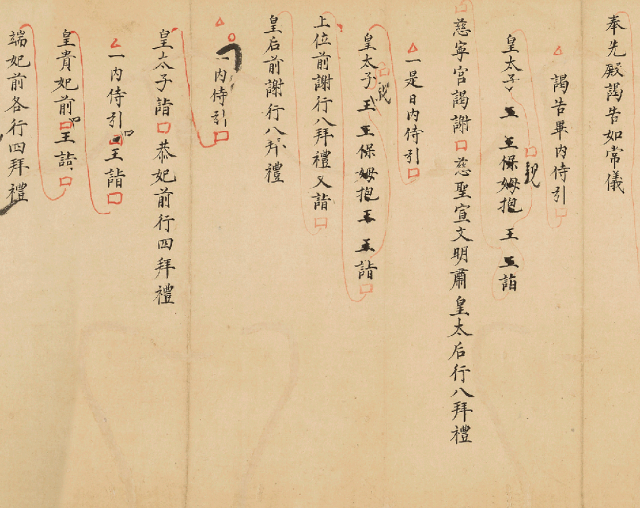 奉先殿謁告如常儀
謁告畢內侍引
皇太子 王 王保姆抱 王 王詣
親
慈寧宮謁謝 慈聖宣文明肅皇太后行八拜禮
一是日內侍引
皇太子 王 王保姆抱 王 王詣
上位前謝行八拜禮又詣
皇后前謝行八拜禮
一內侍引
皇太子詣 恭妃前行四拜禮
一內侍引 王詣
皇貴妃前 王詣
端妃前各行四拜禮